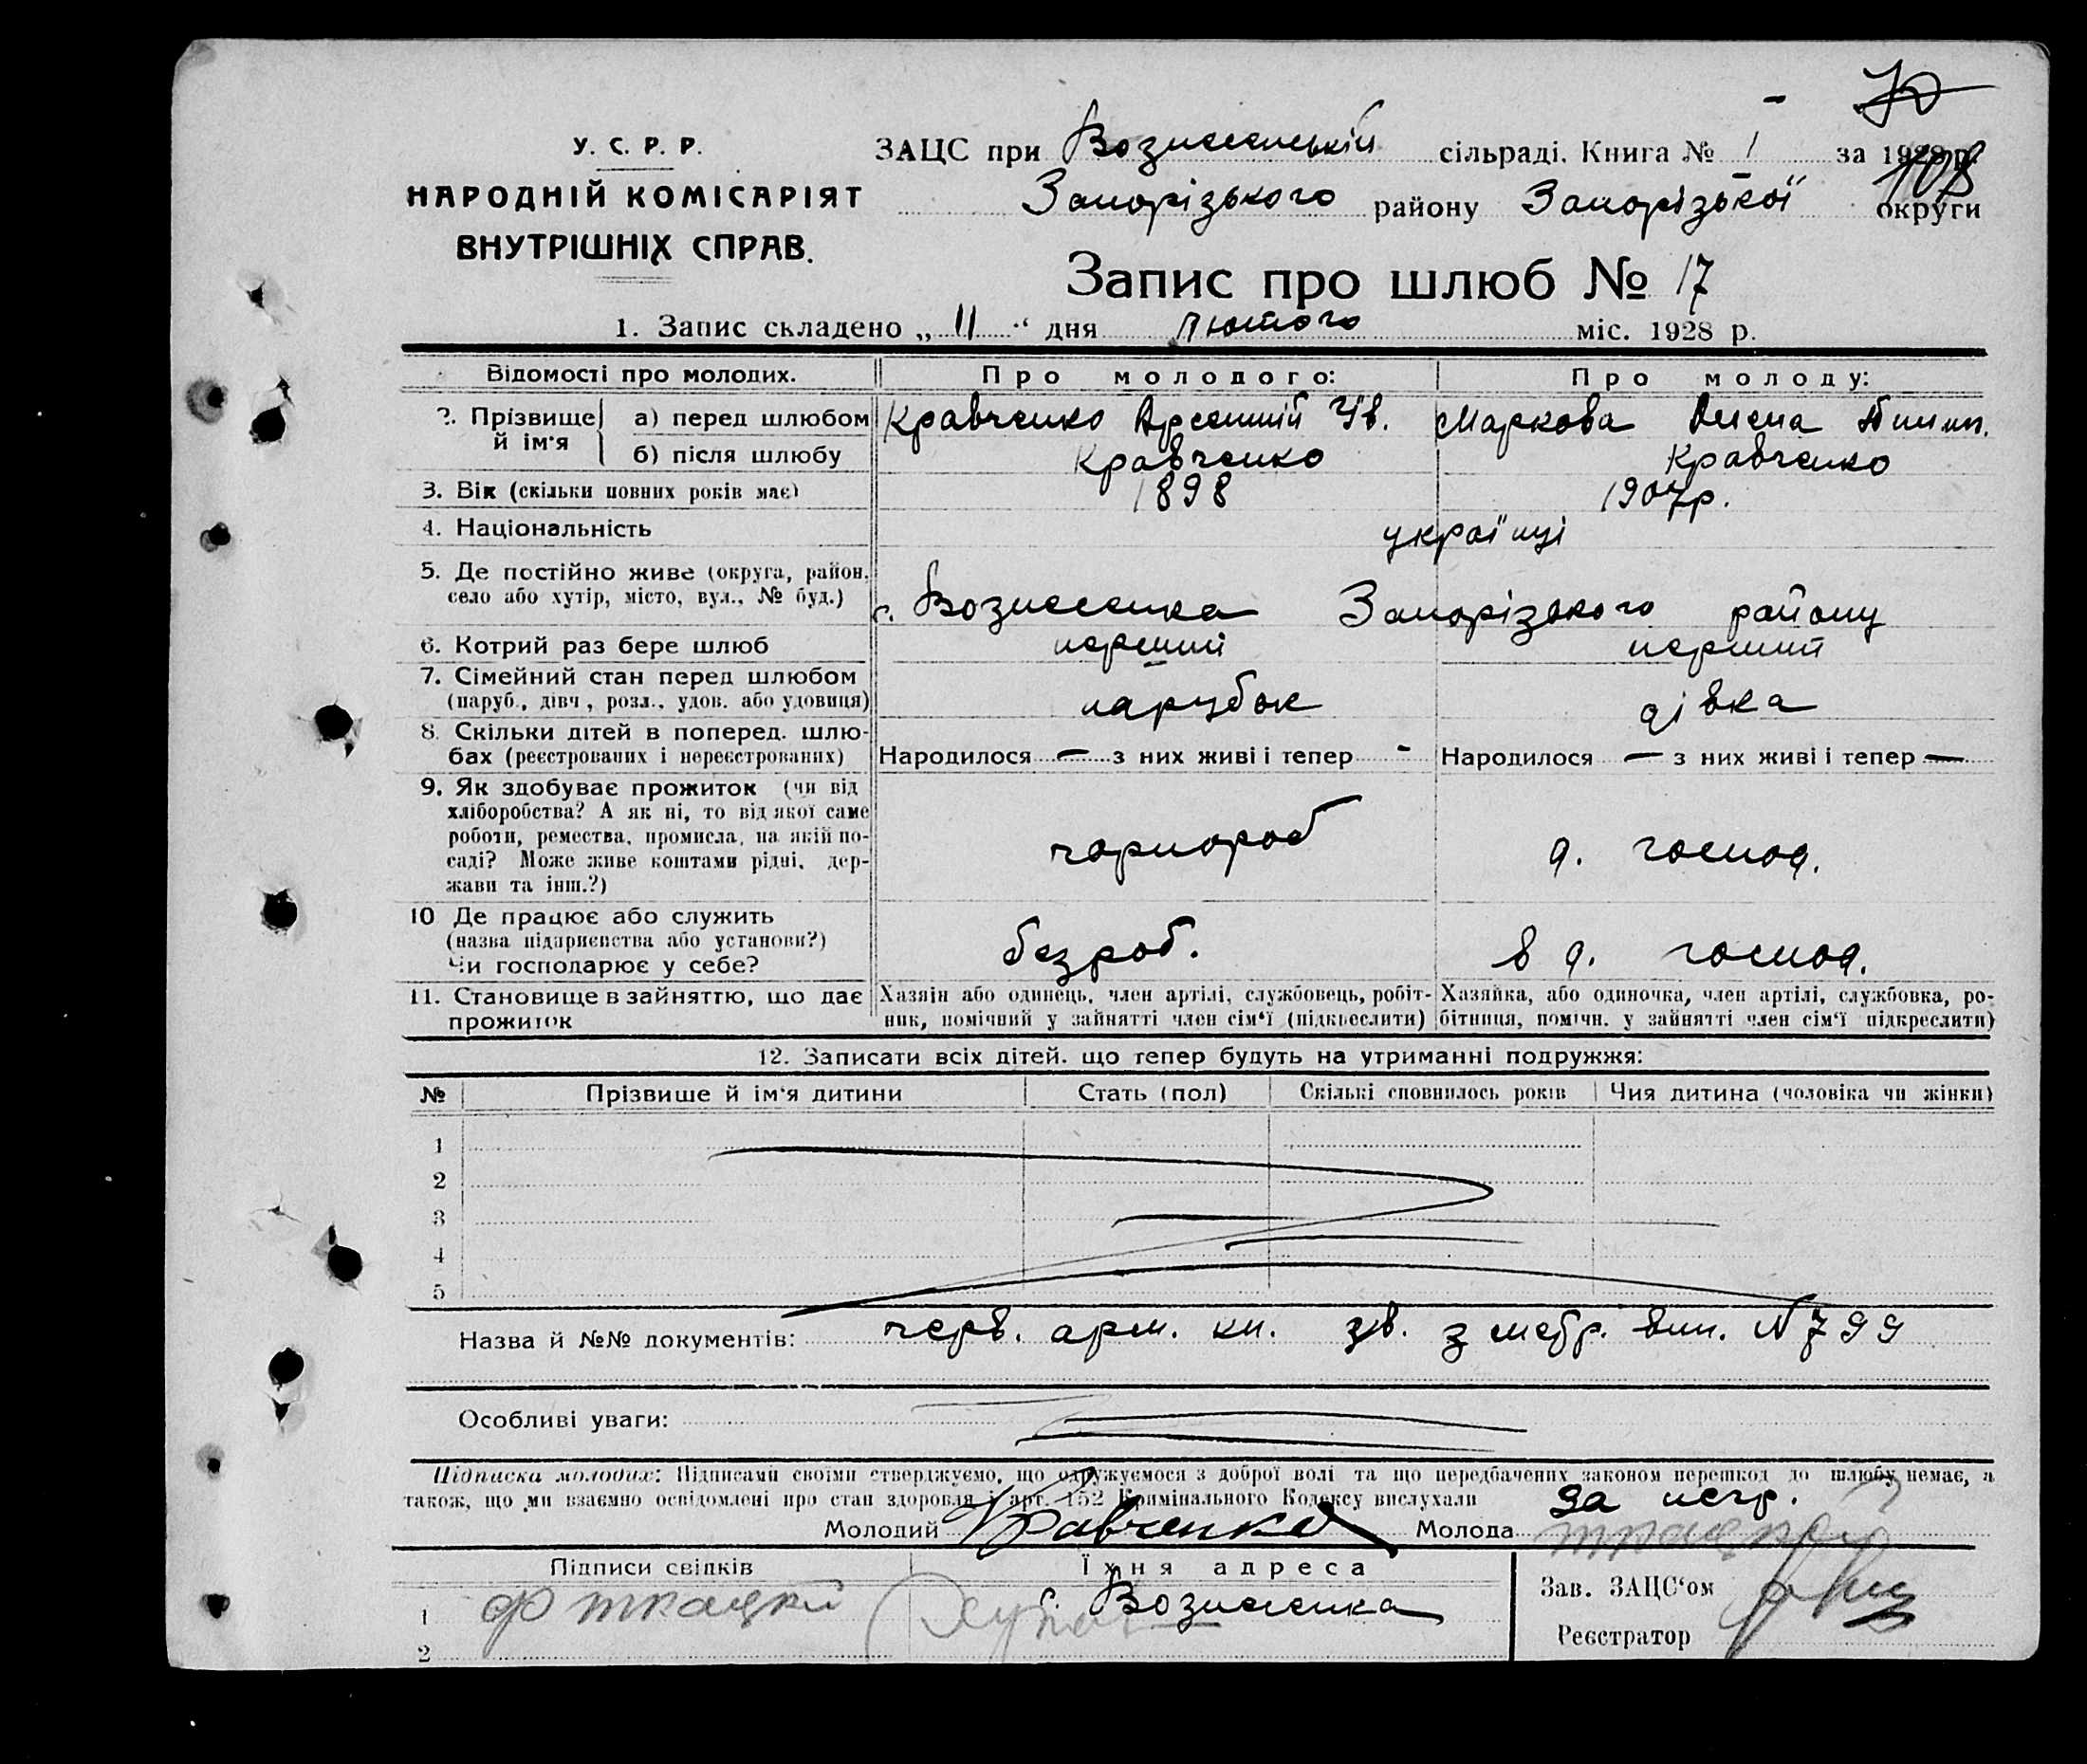 У. С. Р. Р.
НАРОДНІЙ КОМІСАРІЯТ
ВНУТРІШНІХ СПРАВ.
ЗАЦС при Вознесенській сільраді. Книга № 1 за 1928 р.
108
Запорізького району Запорізької округи
Запис про шлюб № 17
1. Запис складено „ 11 “ дня лютого міс. 1928 р.
Відомості про молодих. Про молодого: Про молоду:
2. Прізвище й ім‘я а) перед шлюбом Кравченко Арсеній Ів. Маркова
б) після шлюбу Кравченко Кравченко
3. Вік (скільки повних років має) 1898 1907р.
4. Національність українці
5. Де постійно живе (округа, район, село або хутір, місто, вул., № буд.) с. Вознесенка Запорізького району
6. Котрий раз бере шлюб перший перший
7. Сімейний стан перед шлюбом (паруб., дівч., розл., удов. або удовиця) парубок дівка
8. Скільки дітей в поперед. шлюбах (реєстрованих і нереєстрованих) Народилося — з них живі і тепер - Народилося — з них живі і тепер —
9. Як здобуває прожиток (чи від
хліборобства? А як ні, то від якої саме
роботи, ремества, промисла, на якій по-
саді? Може живе коштами рідні, дер-
жави та інш.?)
чорнороб д. господ.
10 Де працює або служить
(назва підприєпства або установи?)
Чи господарює у себе?
безроб. в д. господ.
11. Становище в зайняттю, що дає прожиток
Хазяїн або одинець, член артілі, службовець, робіт-
ник, помічний у зайнятті член сім‘ї (підкреслити)
Хазяйка, або одиночка, член артілі, службовка, ро-
бітниця, помічн. у зайнятті член сім‘ї підкреслити)
12. Записати всіх дітей. що тепер будуть на утриманні подружжя:
№ Прізвише й ім‘я дитини Стать (пол) Скількі сповнилось років Чия дитина (чоловіка чи жінки)
1
2
3
4
5
Назва й №№ документів: черв. арм. кн. зв. з метр. вип. N 799
Особливі уваги:
Підписка молодих: Підписами своїми стверджуємо, що одружуємося з доброї волі та що передбачених законом перешкод до шлюбу немає, а
також, що ми взаємно освідомлені про стан здоровля і арт. 152 Кримінального Кодексу вислухали
Молодий Кравченко Молода за негр.
Підписи свідків Їхня адреса
1 с. Вознесенка
2
Зав. ЗАЦС‘ом
Реєстратор